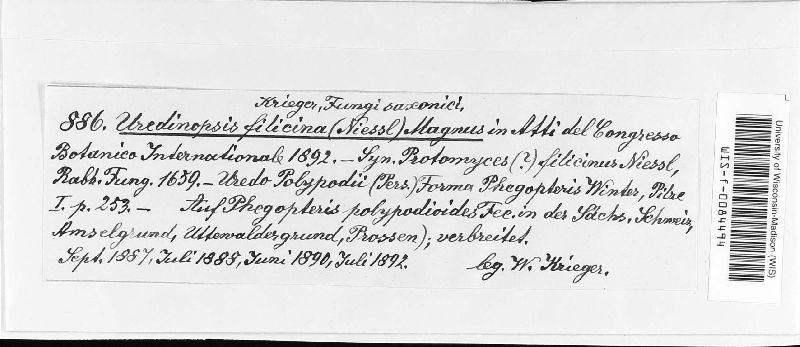 Krieger, Fungi saxonici.
886. Uredinopsis filicina (Niessl) Magnus in Atti del Congresso
Botanico International 1892. — Syn. Protomyces (?) filicinus Niessl,
Rabh. Fung. 1659. — Uredo Polypodii (Pers.) Forma Phegopteris Winter, Pilze
I. p. 253. — Auf Phegopteris polypodioides Fée. in der Sächs. Schweiz,
Amselgrund, Uttewaldergrund, Prossen); verbreitet.
Sept. 1887, Juli 1888, Juni 1890, Juli 1892. leg. W. Krieger.
University of Wisconsin-Madison (WIS)
WIS-F-0084494